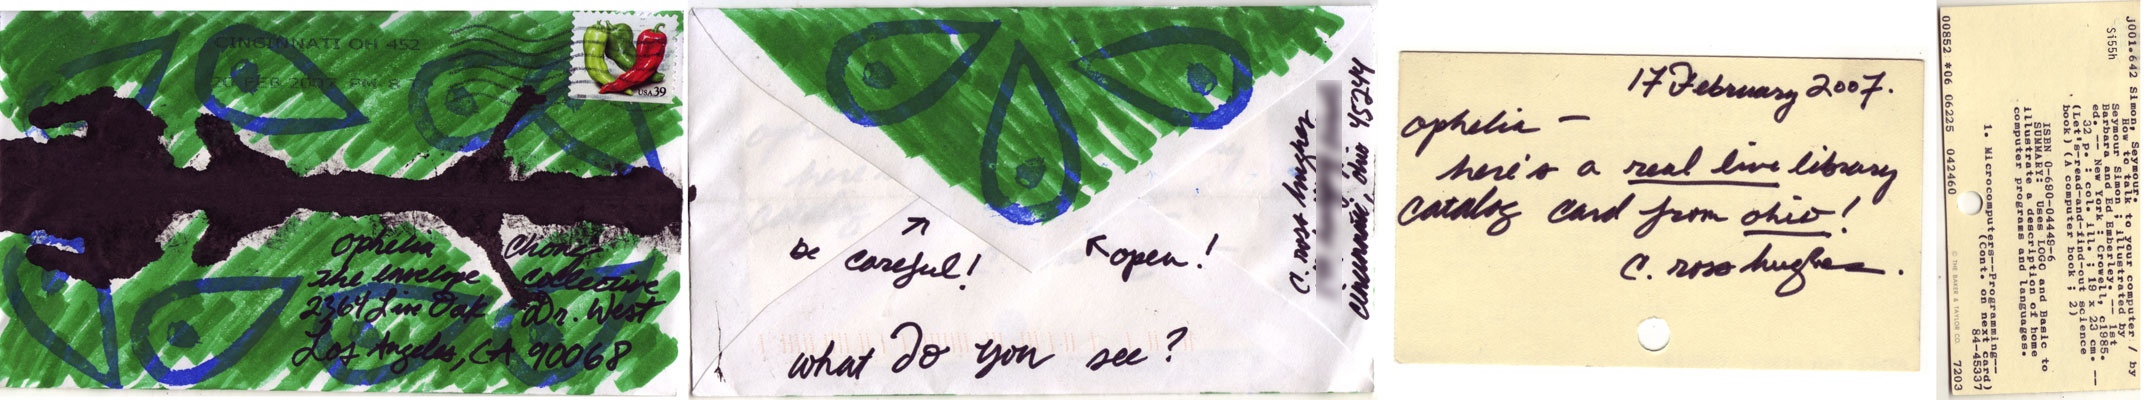 CINCINNATI OH 452
20 FEB 2007 PM 8
USA 39
Ophelia Chong
The Envelope Collective
2364 Live Oak Dr. West
Los Angeles, CA 90068
be careful!
open!
what do you see?
C. ross hughes
cincinnati, ohio 45244
17 February 2007.
Ophelia —
here's a real live library
catalog card from ohio!
C. ross hughes.
J001.642 Simon, Seymour.
Si55h How to talk to your computer / by
Seymour Simon ; illustrated by
Barbara and Ed Emberley. -- 1st
ed. -- New York : Crowell, c1985.
32 p. : col. ill. ; 19 x 23 cm. --
(Let's-read-and-find-out science
book) (A computer book ; 2)
ISBN 0-690-04449-6
SUMMARY: Uses LOGO and Basic to
illustrate a description of home
computer programs and languages.
1. Microcomputers--Programming--
(Cont. on next card)
84-45337
© THE BAKER & TAYLOR CO. 7203
00852 *06 06225 042460